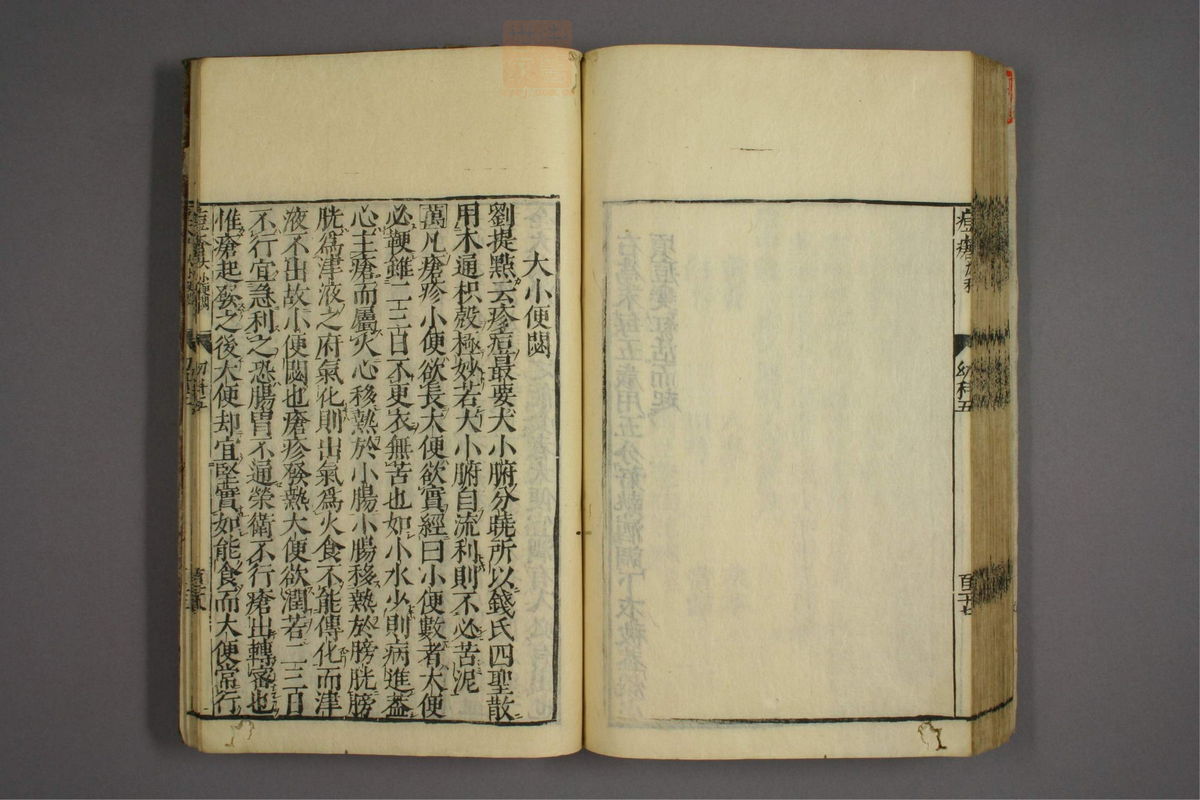 幼科五
大小便閟
劉提點云疹痘最要大小腑分曉所以錢氏四聖散
用木通枳殼極妙若大小腑自流利則不必苦泥
萬凡瘡疹小便欲長大便欲實經曰小便數者大便
必鞕雖二三日不更衣無苦也如小水少則病進蓋
心主瘡而屬火心移熱於小腸小腸移熱於膀胱膀
胱爲津液之府氣化則出氣爲火食不能傳化而津
液不出故小便閟也瘡疹發熱大便欲潤若二三日
不行宜急利之恐腸胃不通榮衛不行瘡出轉審也
惟瘡起發之後大便却宜堅實如能食而大便常行